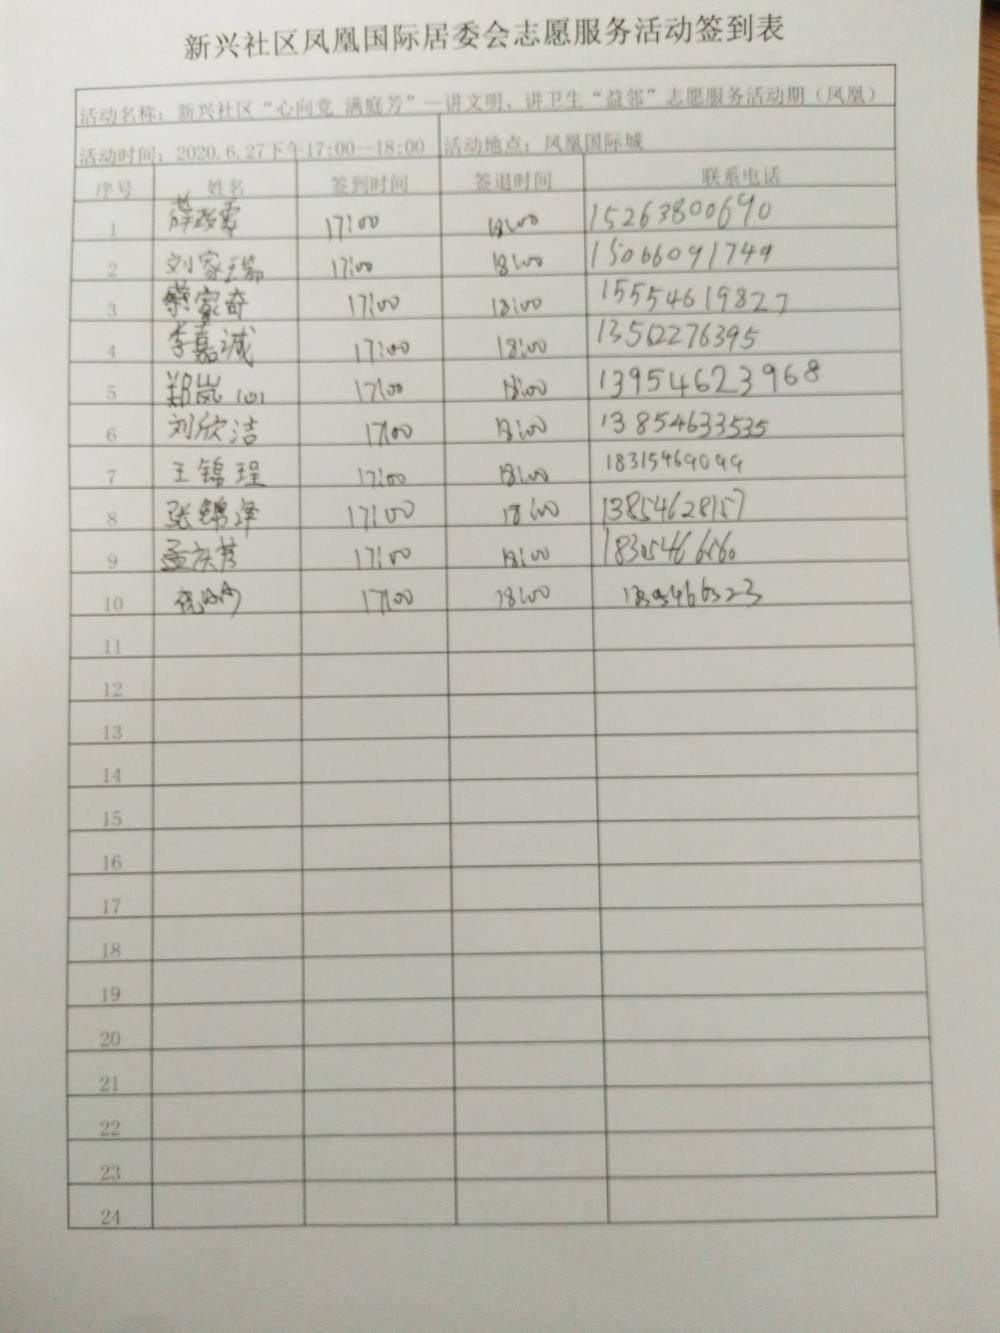 新兴社区凤凰国际居委会志愿服务活动签到表
活动名称：新兴社区“心向党 满庭芳”—讲文明、讲卫生“益邻”志愿服务活动期（凤凰）
活动时间：2020.6.27下午17:00—18:00 活动地点：凤凰国际城
序号 姓名 签到时间 签退时间 联系电话
1 薛 17:00 18:00 15263800690
2 刘家瑞 17:00 18:00 15066091749
3 蔡家奇 17:00 18:00 15554619827
4 李嘉诚 17:00 18:00
5 郑岚心 17:00 18:00 13954623968
6 刘欣洁 17:00 18:00 13854633535
7 王锦珵 17:00 18:00 18315469099
8 张锦泽 17:00 18:00 13854628157
9 17:00 18:00
10 17:00 18:00
11
12
13
14
15
16
17
18
19
20
21
22
23
24